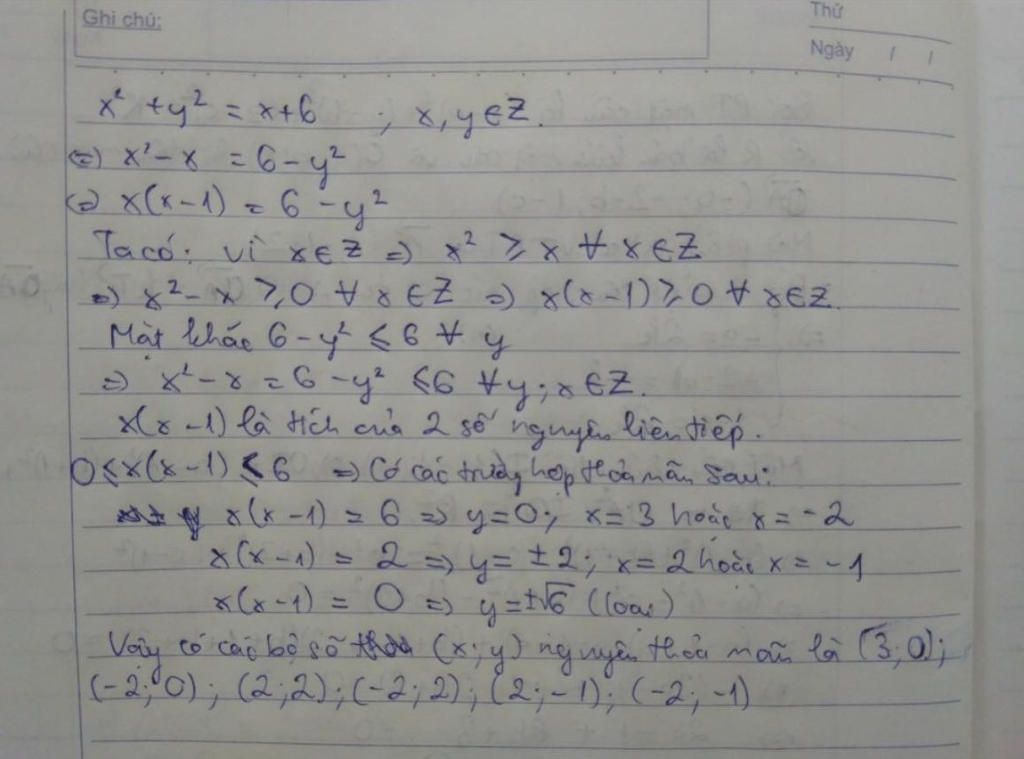 Ghi chú:
Thứ
Ngày / /
x² + y² = x+6 ; x, y ∈ Z.
(=) x² - x = 6 - y²
(=) x(x-1) = 6 - y²
Ta có: vì x ∈ Z => x² ≥ x ∀ x ∈ Z
=> x² - x ≥ 0 ∀ x ∈ Z => x(x-1) ≥ 0 ∀ x ∈ Z.
Mặt khác 6 - y² ≤ 6 ∀ y
=> x² - x = 6 - y² ≤ 6 ∀ y; x ∈ Z.
x(x-1) là tích của 2 số nguyên liên tiếp.
0 ≤ x(x-1) ≤ 6 => Có các trường hợp thỏa mãn sau:
x(x-1) = 6 => y=0; x=3 hoặc x=-2
x(x-1) = 2 => y=±2; x=2 hoặc x=-1
x(x-1) = 0 => y=±√6 (loại)
Vậy có các bộ số (x;y) nguyên thỏa mãn là (3;0);
(-2;0); (2;2); (-2;2); (2;-1); (-2;-1)